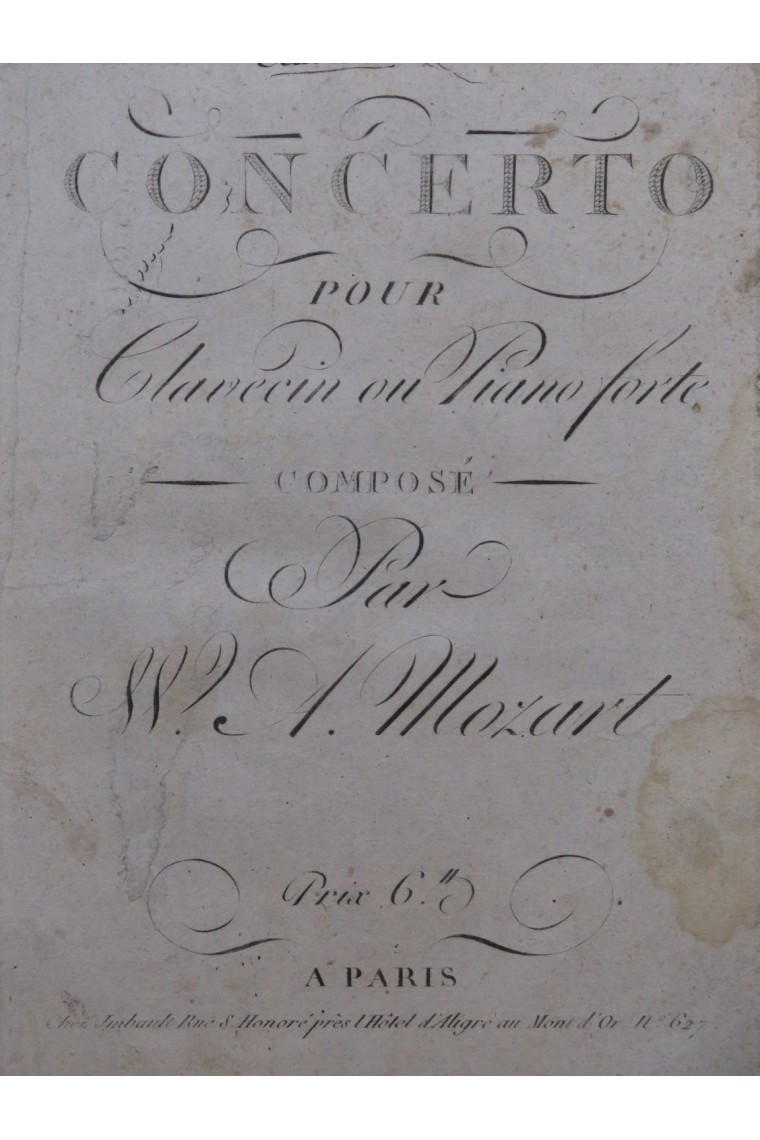 CONCERTO
POUR
Clavecin ou Piano forte
COMPOSÉ
Par
W. A. Mozart
Prix 6.
A PARIS
Chez Imbault Rue S. Honoré près l'Hôtel d'Aligre au Mont d'Or N.° 627.